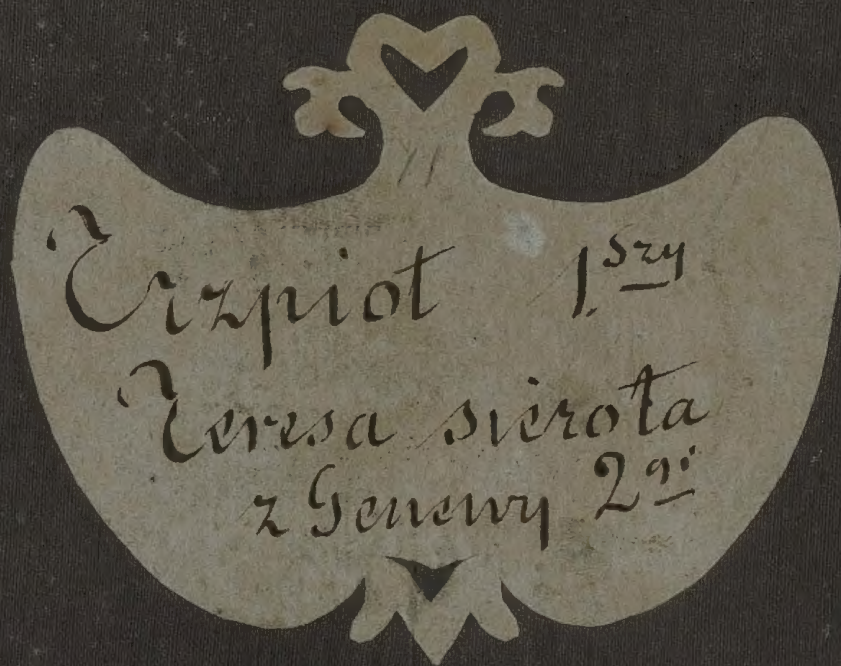 11
Trzpiot 1.szy
Teresa sierota
z Genewy 2gi